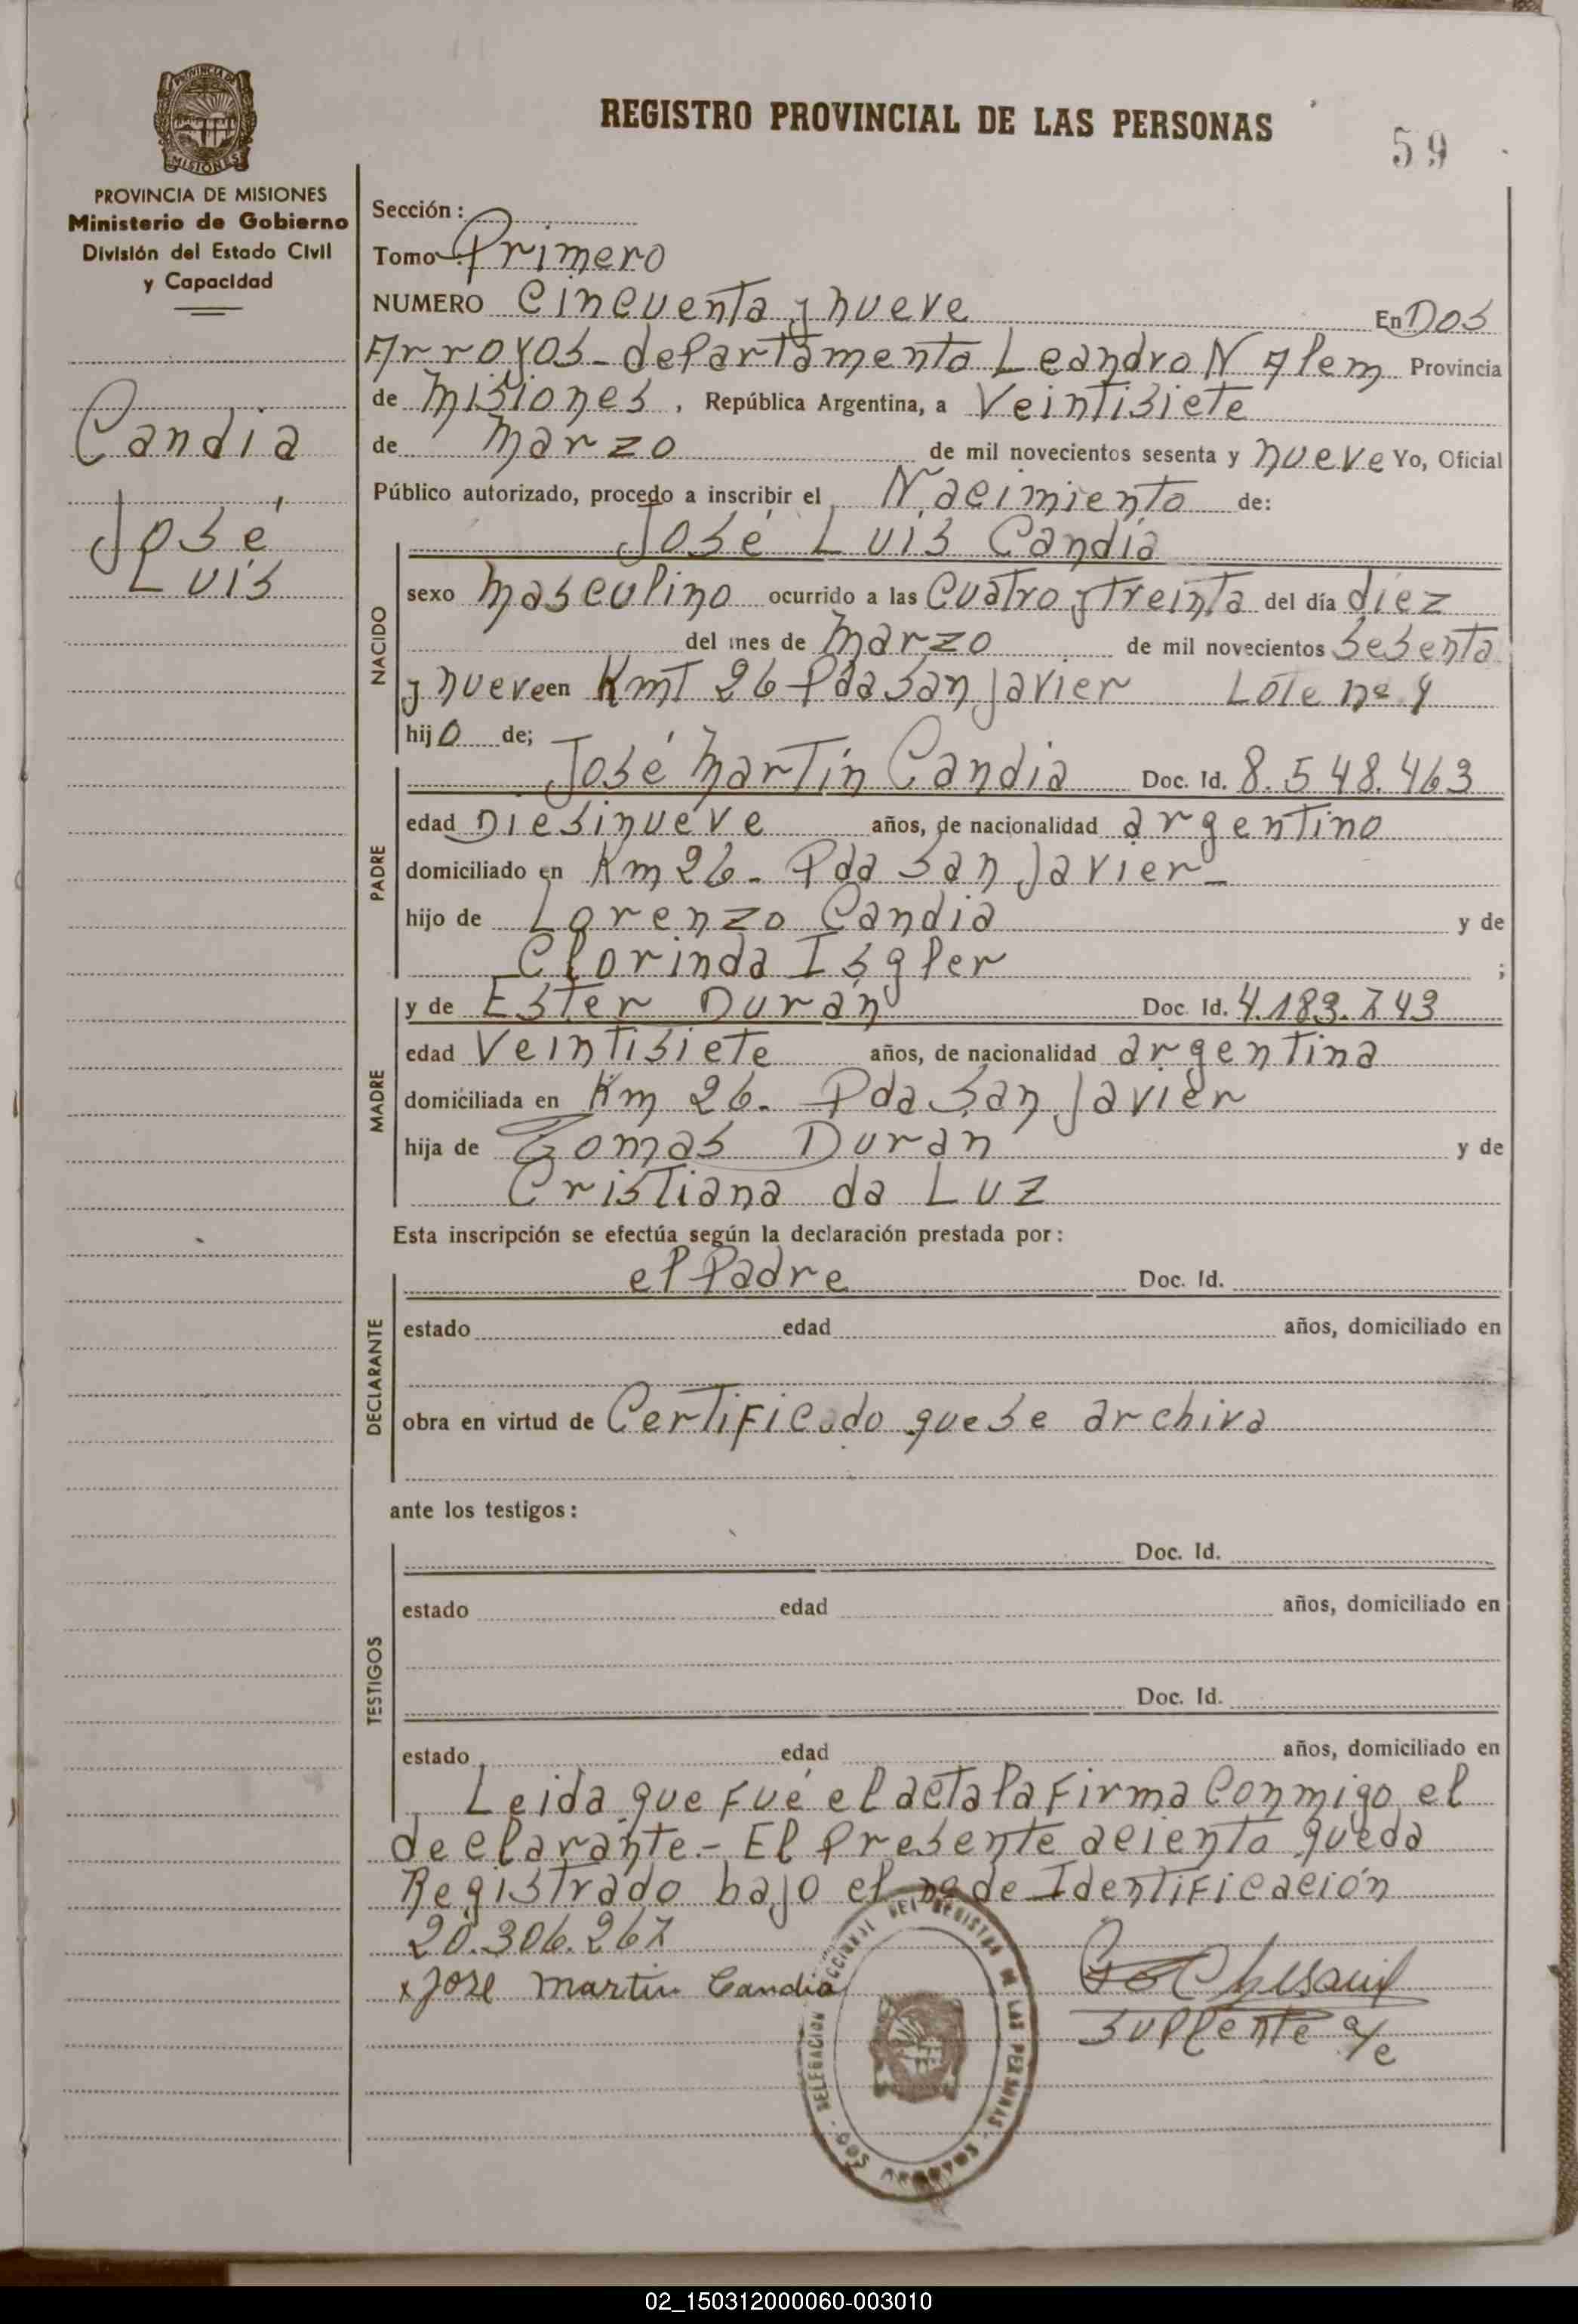 REGISTRO PROVINCIAL DE LAS PERSONAS
59
PROVINCIA DE MISIONES
MISIONES
PROVINCIA DE MISIONES
Ministerio de Gobierno
División del Estado Civil
y Capacidad
Candia
José
Luis
Sección:
Tomo: Primero
NUMERO Cincuenta y nueve En Dos
Arroyos - departamento Leandro N Alem Provincia
de Misiones, República Argentina, a Veintisiete
de Marzo de mil novecientos sesenta y nueve Yo, Oficial
Público autorizado, procedo a inscribir el Nacimiento de:
José Luis Candia
NACIDO
sexo Masculino ocurrido a las Cuatro y treinta del día diez
del mes de Marzo de mil novecientos Sesenta
y nueve en Kmt 26 Pda San Javier Lote nº 9
hijo de;
PADRE
José Martín Candia Doc. Id. 8.548.463
edad Diesinueve años, de nacionalidad argentino
domiciliado en Km 26 - Pda San Javier -
hijo de Lorenzo Candia y de
Clorinda Isgler ;
MADRE
y de Ester Durán Doc. Id. 4.183.743
edad Veintisiete años, de nacionalidad argentina
domiciliada en Km 26. Pda San Javier
hija de Tomas Duran y de
Cristiana da Luz
Esta inscripción se efectúa según la declaración prestada por:
DECLARANTE
el Padre Doc. Id.
estado edad años, domiciliado en
obra en virtud de Certificado que se archiva
ante los testigos:
TESTIGOS
Doc. Id.
estado edad años, domiciliado en
Doc. Id.
estado edad años, domiciliado en
Leida que fué el acta la firma Conmigo el
declarante.- El Presente aciento queda
Registrado bajo el nº de Identificación
20.306.267
x Jose Martin Candia
Suplente a/c
DELEGACION SECCIONAL DEL REGISTRO DE LAS PERSONAS - DOS ARROYOS -
02_150312000060-003010